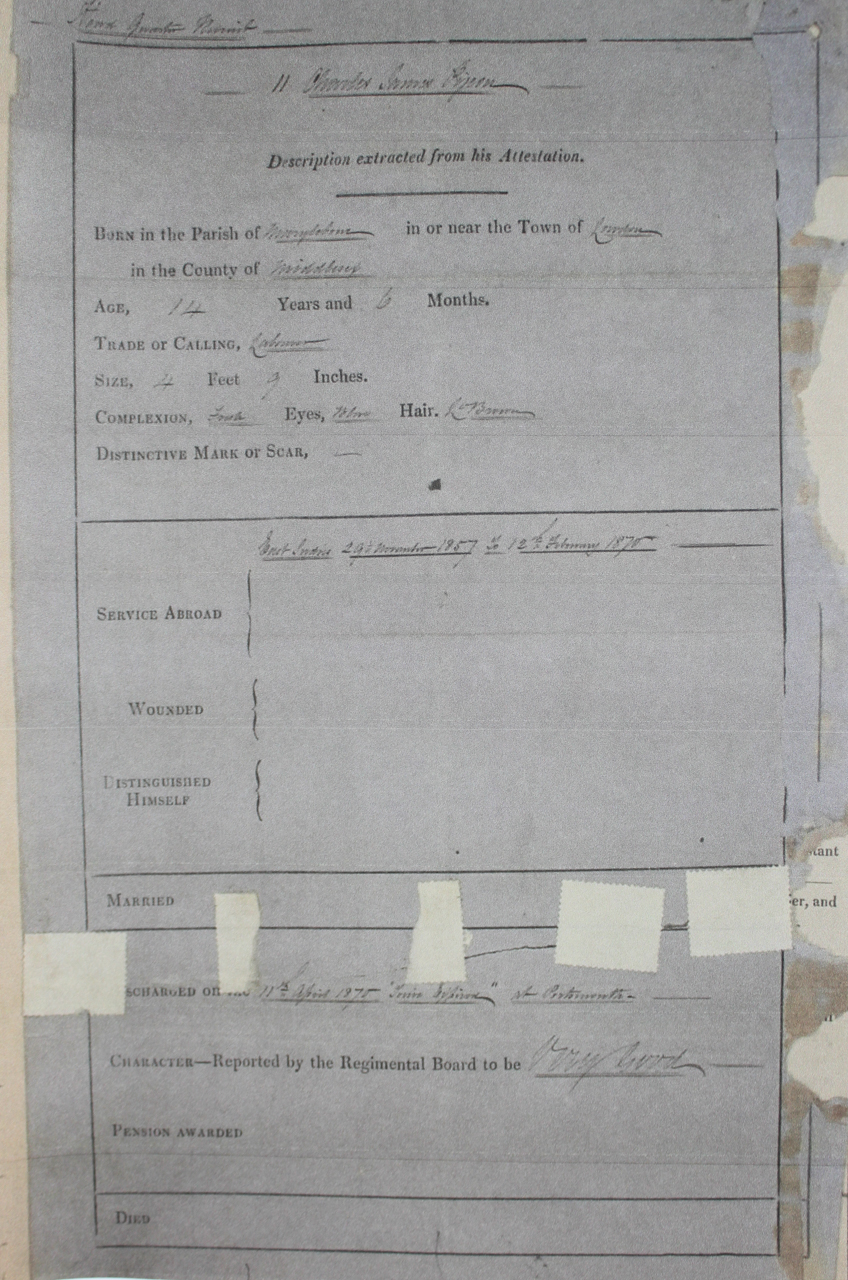 11 Charles James
Description extracted from his Attestation.
BORN in the Parish of Marylebone in or near the Town of London
in the County of Middlesex
AGE, 14 Years and 6 Months.
TRADE or CALLING, Labourer
SIZE, 4 Feet 9 Inches.
COMPLEXION, Fresh Eyes, Blue Hair. Lt Brown
DISTINCTIVE MARK or SCAR, —
East Indies 29th November 1857 to 12th February 1870
SERVICE ABROAD
WOUNDED
DISTINGUISHED
HIMSELF
tant
MARRIED
er, and
SCHARGED on 11th April 1870 "Time Expired" at Portsmouth
CHARACTER—Reported by the Regimental Board to be Very Good
PENSION AWARDED
DIED